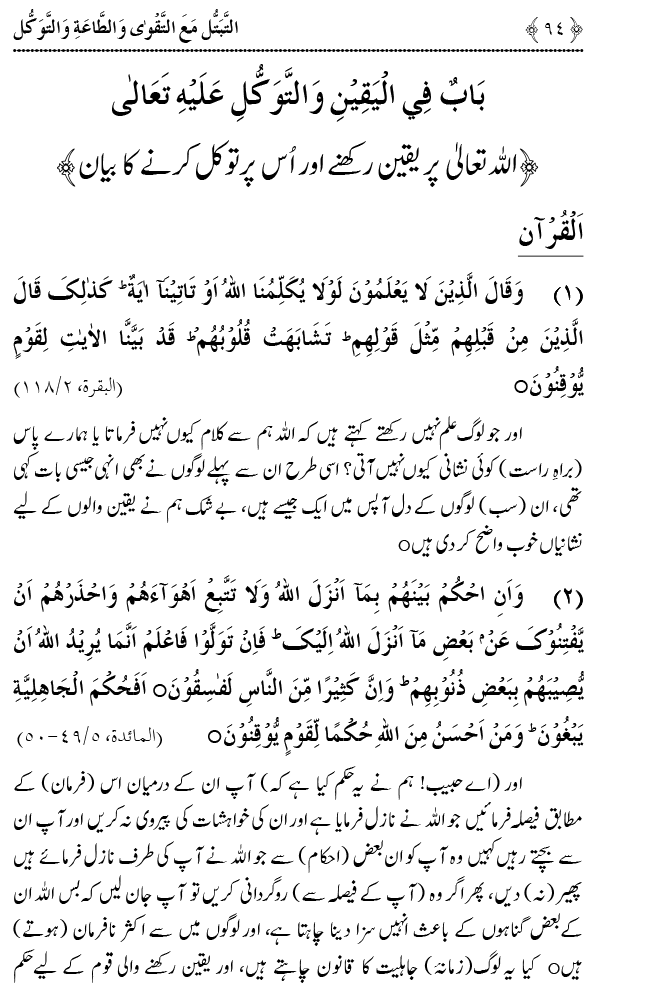 ﴿٩٤﴾ التَّبَتُّل مَعَ التَّقْوٰی وَالطَّاعَةِ وَالتَّوَكُّل
بَابٌ فِي الْيَقِيْنِ وَالتَّوَكُّلِ عَلَيْهِ تَعَالٰی
﴿اللہ تعالیٰ پر یقین رکھنے اور اُس پر توکل کرنے کا بیان﴾
اَلْقُرْآن
(١) وَقَالَ الَّذِيْنَ لَا يَعْلَمُوْنَ لَوْلَا يُكَلِّمُنَا اللهُ اَوْ تَاْتِيْنَآ اٰيَةٌ ؕ كَذٰلِکَ قَالَ
الَّذِيْنَ مِنْ قَبْلِهِمْ مِّثْلَ قَوْلِهِمْ ؕ تَشَابَهَتْ قُلُوْبُهُمْ ؕ قَدْ بَيَّنَّا الْاٰيٰتِ لِقَوْمٍ
يُّوْقِنُوْنَ○ (البقرة، ٢/١١٨)
اور جو لوگ علم نہیں رکھتے کہتے ہیں کہ اللہ ہم سے کلام کیوں نہیں فرماتا یا ہمارے پاس
(براہِ راست) کوئی نشانی کیوں نہیں آتی؟ اسی طرح ان سے پہلے لوگوں نے بھی انہی جیسی بات کہی
تھی، ان (سب) لوگوں کے دل آپس میں ایک جیسے ہیں، بے شک ہم نے یقین والوں کے لیے
نشانیاں خوب واضح کر دی ہیں○
(٢) وَاَنِ احْكُمْ بَيْنَهُمْ بِمَآ اَنْزَلَ اللهُ وَلَا تَتَّبِعْ اَهْوَآءَهُمْ وَاحْذَرْهُمْ اَنْ
يَّفْتِنُوْکَ عَنْۢ بَعْضِ مَآ اَنْزَلَ اللهُ اِلَيْکَ ؕ فَاِنْ تَوَلَّوْا فَاعْلَمْ اَنَّمَا يُرِيْدُ اللهُ اَنْ
يُّصِيْبَهُمْ بِبَعْضِ ذُنُوْبِهِمْ ؕ وَاِنَّ كَثِيْرًا مِّنَ النَّاسِ لَفٰسِقُوْنَ○ اَفَحُكْمَ الْجَاهِلِيَّةِ
يَبْغُوْنَ ؕ وَمَنْ اَحْسَنُ مِنَ اللهِ حُكْمًا لِّقَوْمٍ يُّوْقِنُوْنَ○ (المائدة، ٥/٤٩-٥٠)
اور (اے حبیب! ہم نے یہ حکم کیا ہے کہ) آپ ان کے درمیان اس (فرمان) کے
مطابق فیصلہ فرمائیں جو اللہ نے نازل فرمایا ہے اور ان کی خواہشات کی پیروی نہ کریں اور آپ ان
سے بچتے رہیں کہیں وہ آپ کو ان بعض (احکام) سے جو اللہ نے آپ کی طرف نازل فرمائے ہیں
پھیر (نہ) دیں، پھر اگر وہ (آپ کے فیصلہ سے) روگردانی کریں تو آپ جان لیں کہ بس اللہ ان
کے بعض گناہوں کے باعث انہیں سزا دینا چاہتا ہے، اور لوگوں میں سے اکثر نافرمان (ہوتے)
ہیں○ کیا یہ لوگ (زمانۂ) جاہلیت کا قانون چاہتے ہیں، اور یقین رکھنے والی قوم کے لیے حکم